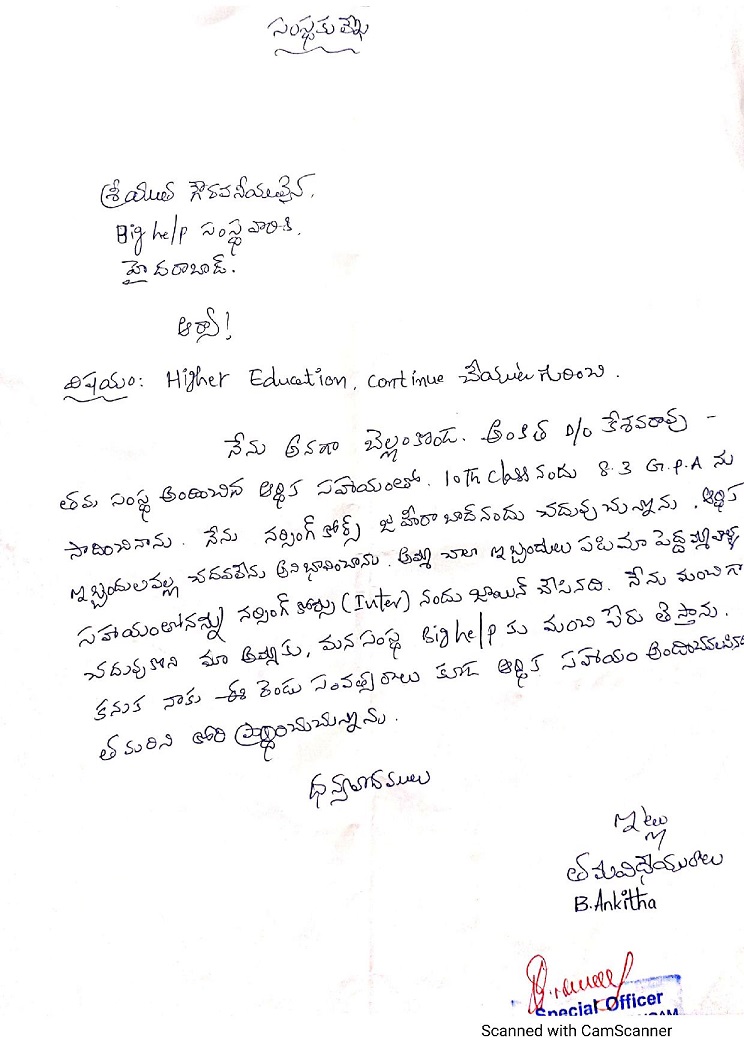 సంస్థకు లేఖ
శ్రీయుత గౌరవనీయులైన,
Big help సంస్థ వారికి.
హైదరాబాద్.
ఆర్యా!
విషయం: Higher Education, continue చేయుట గురించి.
నేను అనగా బెల్లంకొండ. అంకిత D/o కేశవరావు -
తమ సంస్థ అందించిన ఆర్థిక సహాయంతో. 10th class నందు 8.3 G.P.A ను
సాదించినాను. నేను నర్సింగ్ కోర్స్ జహీరాబాద్ నందు చదువుచున్నాను. ఆర్థిక
ఇబ్బందులవల్ల చదవలేను అని భావించాను. అమ్మ చాలా ఇబ్బందులు పడి మా పెద్దమ్మవాళ్ళ
సహాయంతో నన్ను నర్సింగ్ కోర్సు (Inter) నందు జాయిన్ చేసినది. నేను మంచిగా
చదువుకొని మా అమ్మకు, మన సంస్థ Big help కు మంచి పేరు తెస్తాను.
కనుక నాకు ఈ రెండు సంవత్సరాలు కూడ ఆర్థిక సహాయం
తమరిని కోరి ప్రార్థించుచున్నాను.
ధన్యవాదములు
ఇట్లు
తమ విధేయురాలు
B. Ankitha
Special Officer
Scanned with CamScanner